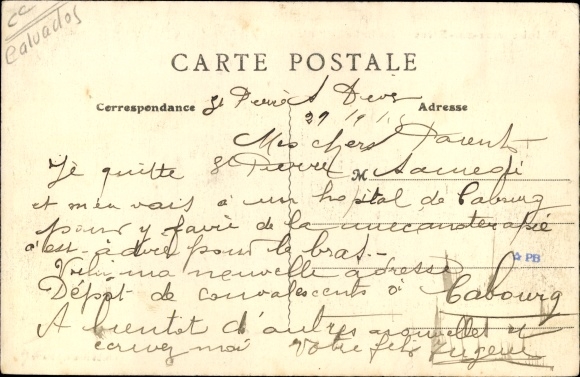 cc
Calvados
CARTE POSTALE
Correspondance St Pierre s Dives Adresse
29
Mes chers Parents
Je quitte St Pierre Samedi
M
et men vais a un hopital de Cabourg
pour y faire de la mecanoterapie
c'est-à dire pour le bras.-
☆ PB
Voila ma nouvelle adresse
Dépot de convalescents à Cabourg
A bientot d'autres nouvelles et
ecrivez moi Votre fils Eugene